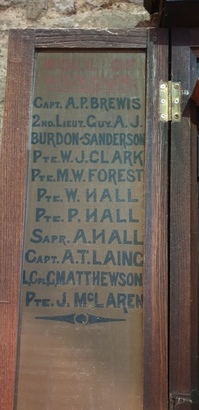 ROLL OF
HONOUR
CAPT. A.P. BREWIS
2ND. LIEUT. GUY. A. J.
BURDON-SANDERSON
PTE. W. J. CLARK
PTE. M.W. FOREST
PTE. W. HALL
PTE. P. HALL
SAPR. A. HALL
CAPT. A.T. LAING
L.CPL C. MATTHEWSON
PTE. J. MCLAREN